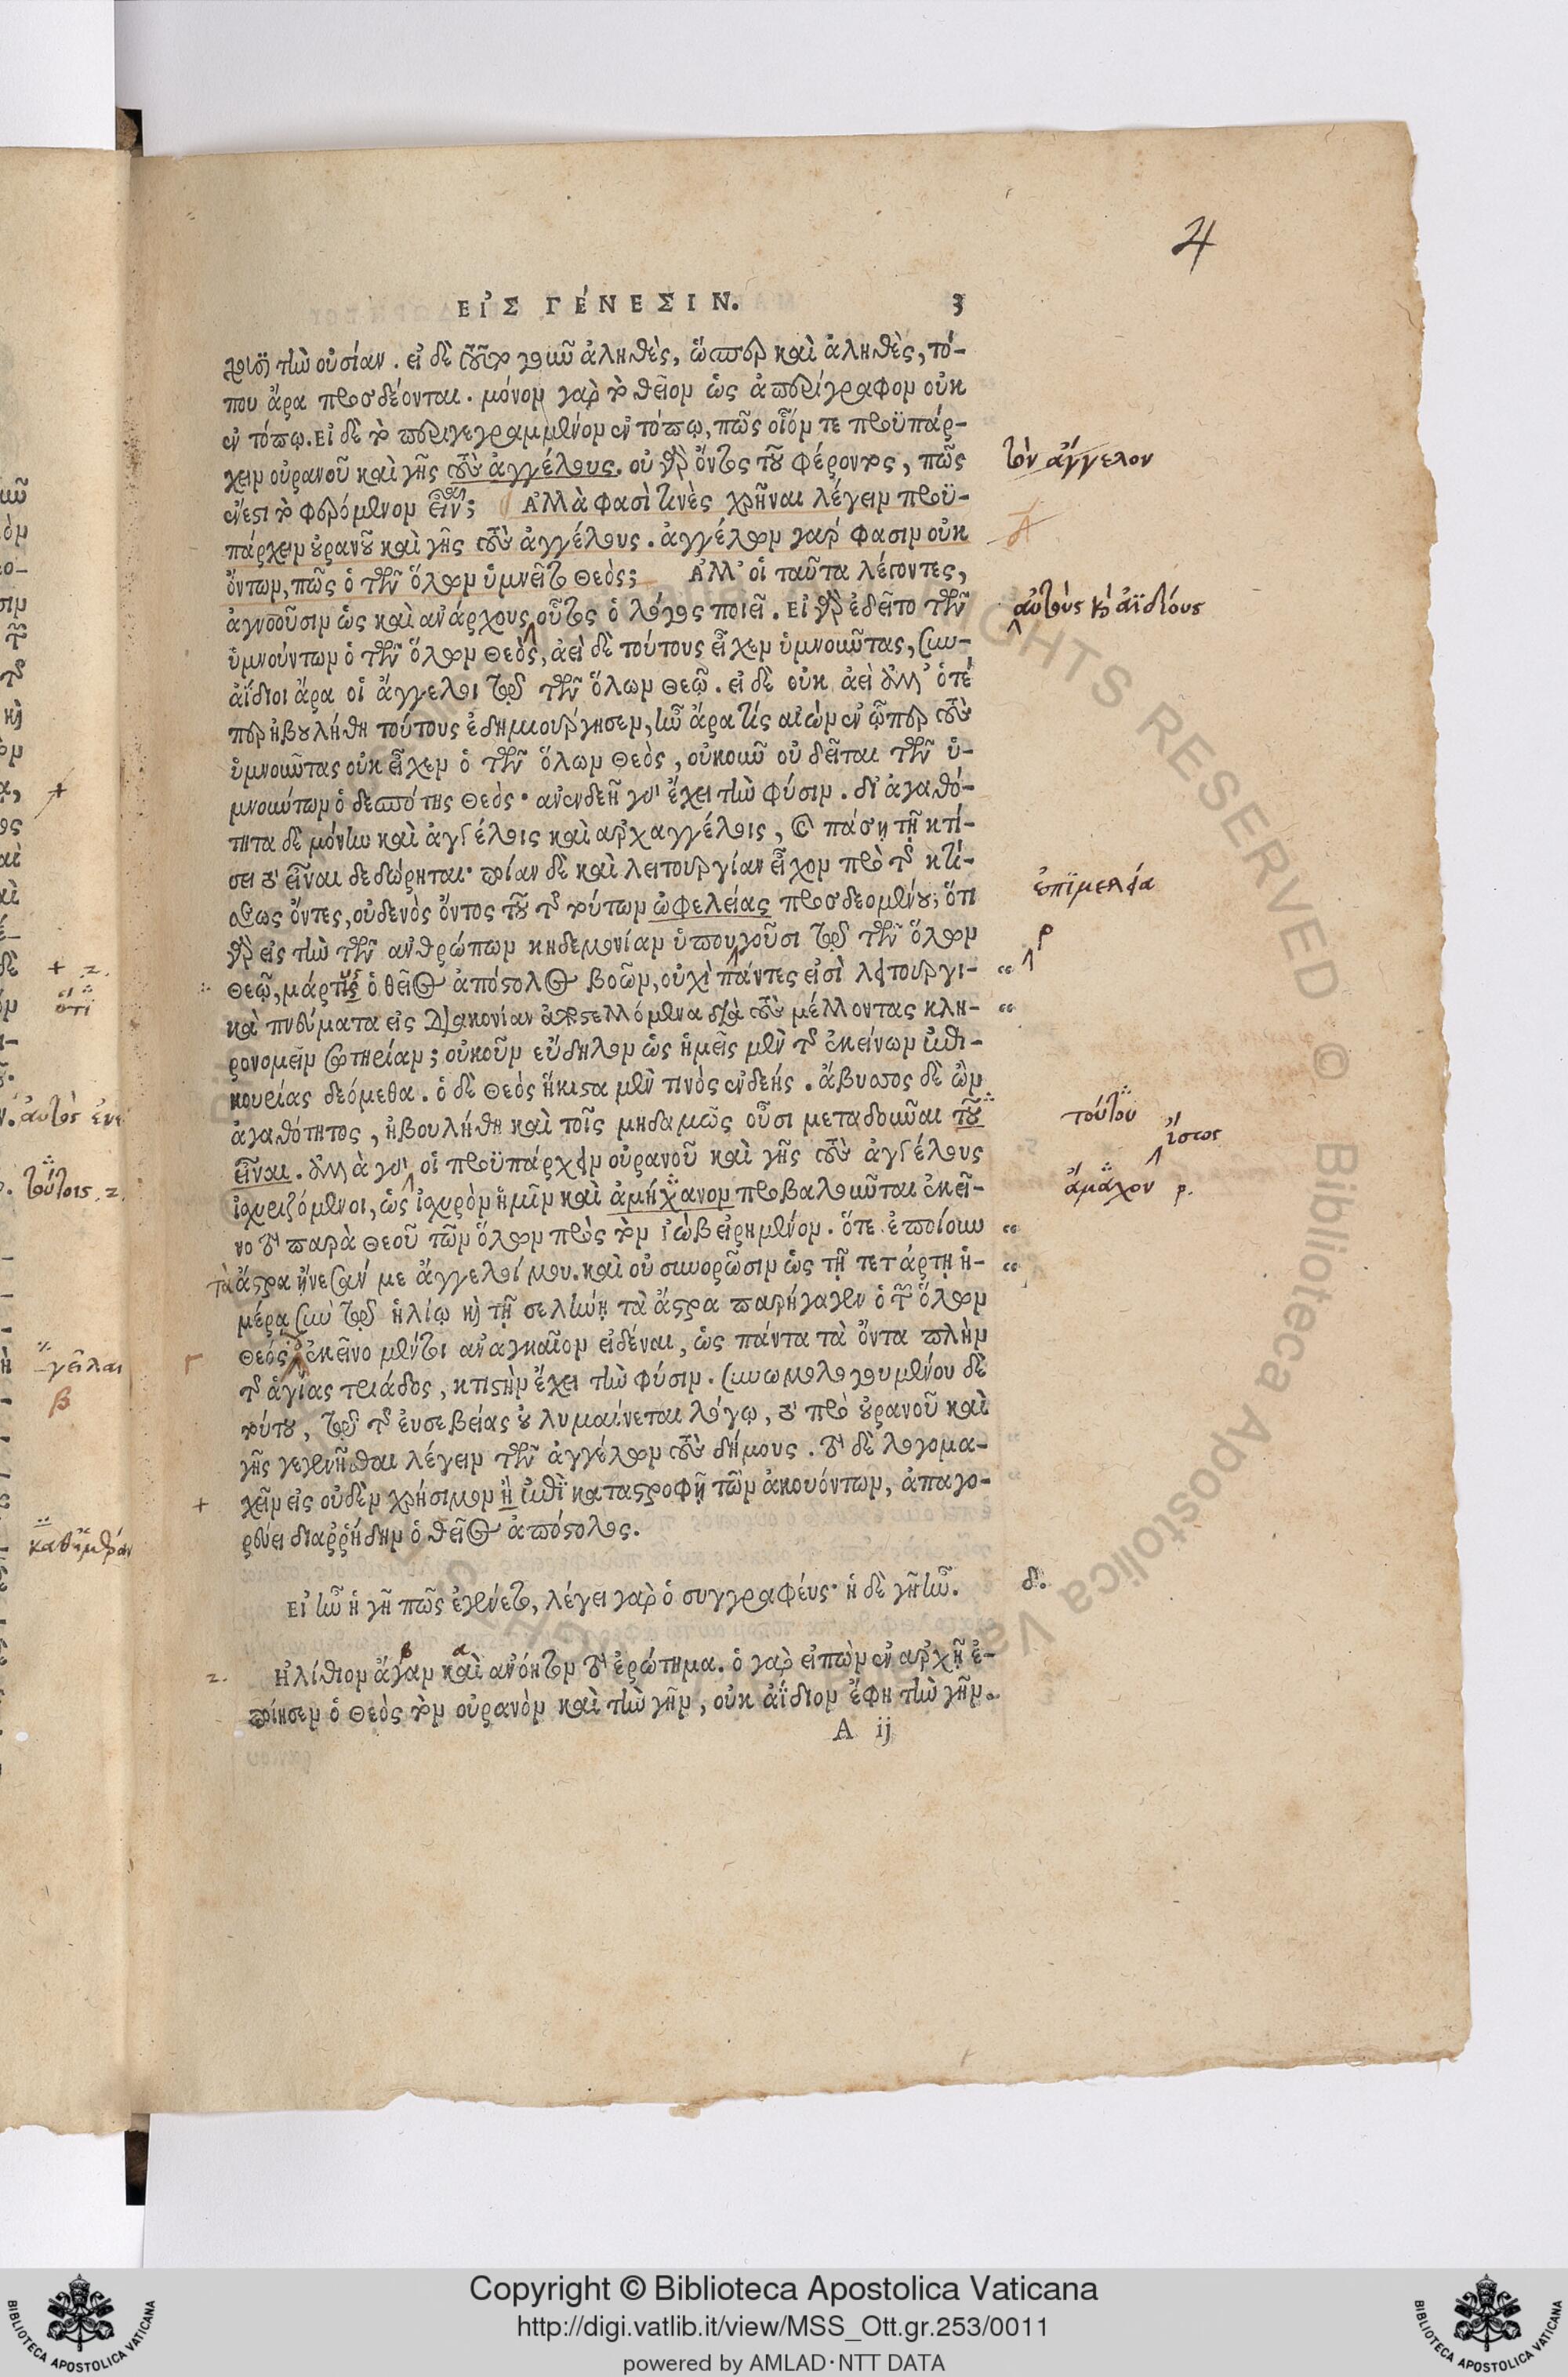 4
ΕἸΣ ΓΈΝΕΣΙΝ. 3
τὴν οὐσίαν. εἰ δὲ τοῦτο γοῦν ἀληθὲς, ὥσπερ καὶ ἀληθὲς, τό-
που ἄρα προσδέονται. μόνον γὰρ τὸ θεῖον ὡς ἀπερίγραφον οὐκ
ἐν τόπῳ. εἰ δὲ τὸ περιγεγραμμένον ἐν τόπῳ, πῶς οἷόν τε προϋπάρ-
χειν οὐρανοῦ καὶ γῆς τοὺς ἀγγέλους. οὐ γὰρ ὄντος τοῦ φέροντος, πῶς
τὸν ἄγγελον
ἔνεστι τὸ φερόμενον εἶναι; Ἀλλὰ φασὶ τινὲς χρῆναι λέγειν προϋ-
πάρχειν οὐρανοῦ καὶ γῆς τοὺς ἀγγέλους. ἀγγέλων γάρ φασιν οὐκ
ὄντων, πῶς ὁ τῶν ὅλων ὑμνεῖτο Θεός; Ἀλλ' οἱ ταῦτα λέγοντες,
ἀγνοοῦσιν ὡς καὶ ἀνάρχους οὗτος ὁ λόγος ποιεῖ. εἰ γὰρ ἐδεῖτο τῶν
αὐτοὺς καὶ ἀϊδίους
ὑμνούντων ὁ τῶν ὅλων Θεὸς, ἀεὶ δὲ τούτους εἶχεν ὑμνοῦντας, συν-
αΐδιοι ἄρα οἱ ἄγγελοι τῷ τῶν ὅλων Θεῷ. εἰ δὲ οὐκ ἀεὶ ἀλλ' ὁτέ
περ ἠβουλήθη τούτους ἐδημιούργησεν, ἦν ἄρα τίς αἰὼν ἐν ᾧπερ τοὺς
ὑμνοῦντας οὐκ εἶχεν ὁ τῶν ὅλων Θεὸς, οὐκοῦν οὐ δεῖται τῶν ὑ-
μνούντων ὁ δεσπότης Θεὸς· ἀνενδεῆ γὰρ ἔχει τὴν φύσιν. δι' ἀγαθό-
τητα δὲ μόνην καὶ ἀγγέλοις καὶ ἀρχαγγέλοις, καὶ πάσῃ τῇ κτί-
σει τὸ εἶναι δεδώρηται· ποίαν δὲ καὶ λειτουργίαν εἶχον πρὸ τῆς κτί-
σεως ὄντες, οὐδενὸς ὄντος τοῦ τῆς τούτων ὠφελείας προσδεομένου; ὅτι
ἐπιμελεία
γὰρ εἰς τὴν τῶν ἀνθρώπων κηδεμονίαν ὑπουργοῦσι τῷ τῶν ὅλων
ρ
Θεῷ, μάρτυς ὁ θεῖος ἀπόστολος βοῶν, οὐχὶ πάντες εἰσὶ λειτουργι-
κὰ πνεύματα εἰς διακονίαν ἀποστελλόμενα διὰ τοὺς μέλλοντας κλη-
ρονομεῖν σωτηρίαν; οὐκοῦν εὔδηλον ὡς ἡμεῖς μὲν τῆς ἐκείνων ἐπι-
κουρίας δεόμεθα. ὁ δὲ Θεὸς ἥκιστα μὲν τινὸς ἐνδεής. ἄβυσσος δὲ ὢν
ἀγαθότητος, ἠβουλήθη καὶ τοῖς μηδαμῶς οὖσι μεταδοῦναι τοῦ
τούτου
εἶναι. ἀλλὰ γὰρ οἱ προϋπάρχειν οὐρανοῦ καὶ γῆς τοὺς ἀγγέλους
ἴστος
ἰσχυριζόμενοι, ὡς ἰσχυρὸν ἡμῖν καὶ ἀμήχανον προβαλοῦνται ἐκεῖ-
ἀμάχον ρ.
νο τὸ παρὰ Θεοῦ τῶν ὅλων πρὸς τὸν ἰὼβ εἰρημένον. ὅτε ἐποίουν
τὰ ἄστρα ᾔνεσάν με ἄγγελοί μου. καὶ οὐ συνορῶσιν ὡς τῇ τετάρτῃ ἡ-
μέρα σὺν τῷ ἡλίῳ καὶ τῇ σελήνῃ τὰ ἄστρα παρήγαγεν ὁ τῶν ὅλων
Θεός ἐκεῖνο μέντοι ἀναγκαῖον εἰδέναι, ὡς πάντα τὰ ὄντα πλὴν
τῆς ἁγίας τριάδος, κτιστὴν ἔχει τὴν φύσιν. συνωμολογουμένου δὲ
τούτου, τῷ τῆς εὐσεβείας οὐ λυμαίνεται λόγῳ, τὸ πρὸ οὐρανοῦ καὶ
γῆς γεγενῆσθαι λέγειν τῶν ἀγγέλων τοὺς δήμους. τὸ δὲ λογομα-
χεῖν εἰς οὐδὲν χρήσιμον ἢ ἐπὶ καταστροφῇ τῶν ἀκουόντων, ἀπαγο-
ρεύει διαῤῥήδην ὁ θεῖος ἀπόστολος.
Εἰ ἦν ἡ γῆ πῶς ἐγένετο, λέγει γὰρ ὁ συγγραφέυς· ἡ δὲ γῆ ἦν. δ.
Ἠλίθιον ἄγαν καὶ ἀνόητον τὸ ἐρώτημα. ὁ γὰρ εἰπὼν ἐν ἀρχῇ ἐ-
ποίησεν ὁ Θεὸς τὸν οὐρανὸν καὶ τὴν γῆν, οὐκ ἀΐδιον ἔφη τὴν γῆν.
A ij
Copyright © Biblioteca Apostolica Vaticana
http://digi.vatlib.it/view/MSS_Ott.gr.253/0011
powered by AMLAD·NTT DATA